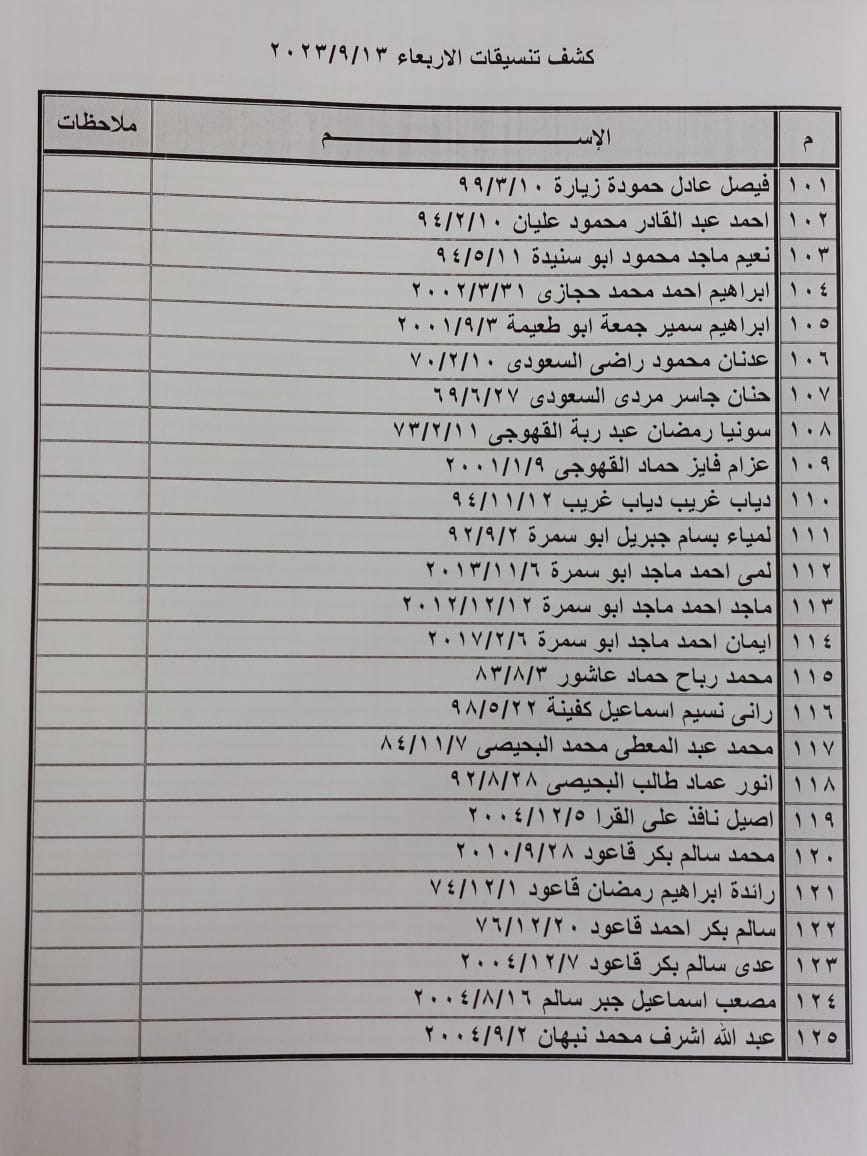 كشف تنسيقات الاربعاء ٢٠٢٣/٩/١٣
م الإســـــــــم ملاحظات
١٠١ فيصل عادل حمودة زيارة ٩٩/٣/١٠
١٠٢ احمد عبد القادر محمود عليان ٩٤/٢/١٠
١٠٣ نعيم ماجد محمود ابو سنيدة ٩٤/٥/١١
١٠٤ ابراهيم احمد محمد حجازى ٢٠٠٢/٣/٣١
١٠٥ ابراهيم سمير جمعة ابو طعيمة ٢٠٠١/٩/٣
١٠٦ عدنان محمود راضى السعودى ٧٠/٢/١٠
١٠٧ حنان جاسر مردى السعودى ٦٩/٦/٢٧
١٠٨ سونيا رمضان عبد ربة القهوجى ٧٣/٢/١١
١٠٩ عزام فايز حماد القهوجى ٢٠٠١/١/٩
١١٠ دياب غريب دياب غريب ٩٤/١١/١٢
١١١ لمياء بسام جبريل ابو سمرة ٩٢/٩/٢
١١٢ لمى احمد ماجد ابو سمرة ٢٠١٣/١١/٦
١١٣ ماجد احمد ماجد ابو سمرة ٢٠١٢/١٢/١٢
١١٤ ايمان احمد ماجد ابو سمرة ٢٠١٧/٢/٦
١١٥ محمد رباح حماد عاشور ٨٣/٨/٣
١١٦ رانى نسيم اسماعيل كفينة ٩٨/٥/٢٢
١١٧ محمد عبد المعطى محمد البحيصى ٨٤/١١/٧
١١٨ انور عماد طالب البحيصى ٩٢/٨/٢٨
١١٩ اصيل نافذ على القرا ٢٠٠٤/١٢/٥
١٢٠ محمد سالم بكر قاعود ٢٠١٠/٩/٢٨
١٢١ رائدة ابراهيم رمضان قاعود ٧٤/١٢/١
١٢٢ سالم بكر احمد قاعود ٧٦/١٢/٢٠
١٢٣ عدى سالم بكر قاعود ٢٠٠٤/١٢/٧
١٢٤ مصعب اسماعيل جبر سالم ٢٠٠٤/٨/١٦
١٢٥ عبد الله اشرف محمد نبهان ٢٠٠٤/٩/٢